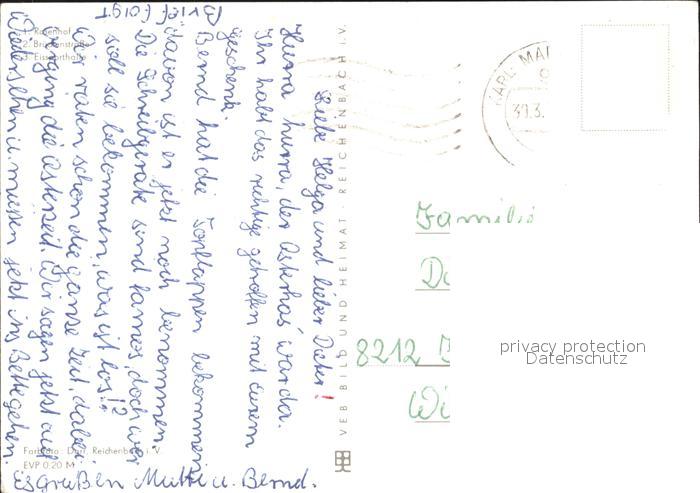 Liebe Helga und lieber Dieter!
Hurra hurra, der Osterhas' war da.
Ihr habt das richtige getroffen mit Eurem
Geschenk.
Bernd hat die Topflappen bekommen
davon ist er jetzt noch benommen.
Die Schreibgeräte sind famos doch wer
soll sie bekommen, was ist los!?
Wir raten schon die ganze Zeit, dabei
verging die Osterzeit. Wir sagen jetzt auf
Wiedersehen u. müssen jetzt ins Bette gehen.
Es grüßen Mutti u. Bernd.
Brief folgt
1. Rosenhof
2. Brückenstraße
3. Eissporthalle
Farbfoto: Darr, Reichenbach i. V.
EVP 0.20 M
VEB BILD UND HEIMAT · REICHENBACH i. V.
KARL-MA
30.3.
Familie
8212
Wi
privacy protection
Datenschutz